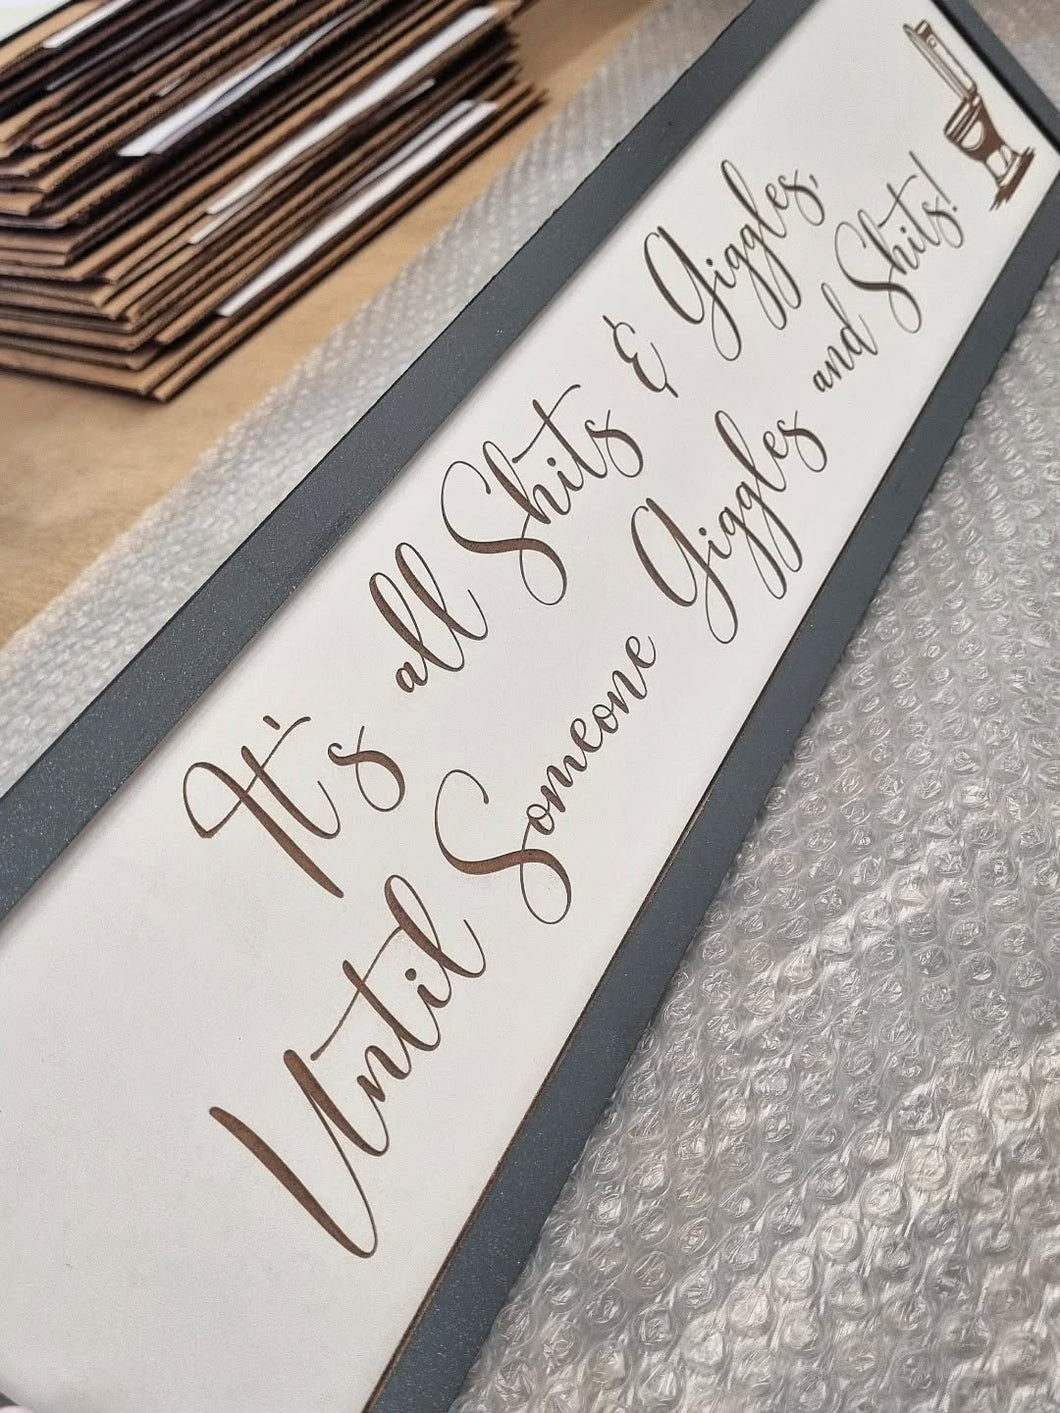 It's all Shits & Giggles,
Until Someone Giggles and Shits!